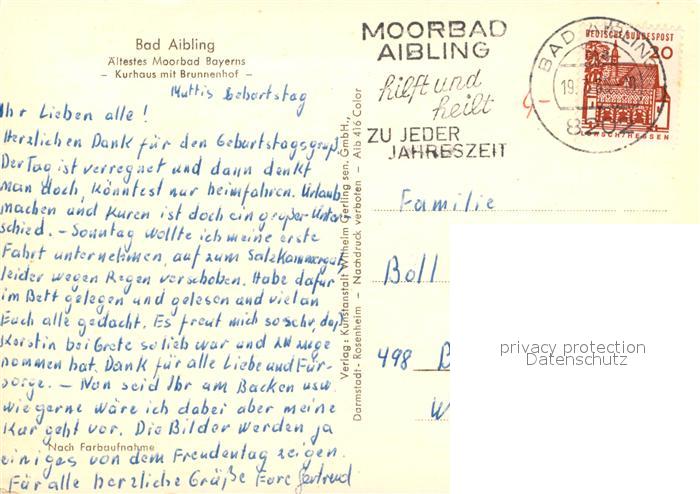 Bad Aibling
Ältestes Moorbad Bayerns
– Kurhaus mit Brunnenhof –
Muttis Geburtstag
Ihr Lieben alle!
Herzlichen Dank für den Geburtstagsgruß.
Der Tag ist verregnet und dann denkt
man doch, könntest nur heimfahren. Urlaub
machen und Kuren ist doch ein großer Unter
schied. – Sonntag wollte ich meine erste
Fahrt unternehmen, auf zum Salzkammergut,
leider wegen Regen verschoben. Habe dafür
im Bett gelegen und gelesen und viel an
Euch alle gedacht. Es freut mich so sehr, daß
Kerstin bei Grete so lieb war und zu
nommen hat. Dank für alle Liebe und Für-
sorge. – Nun seid Ihr am Backen usw.
wie gerne wäre ich dabei aber meine
Kur geht vor. Die Bilder werden ja
Nach Farbaufnahme
einiges von dem Freudentag zeigen.
Für alle herzliche Grüße Eure Gertrud
Verlag: Kunstanstalt Wilhelm Gerling sen. GmbH.,
Darmstadt - Rosenheim – Nachdruck verboten – Aib 416 Color
MOORBAD
AIBLING
hilft und
heilt
ZU JEDER
JAHRESZEIT
BAD AIBLING
19.
DEUTSCHE BUNDESPOST
20
LORSCH/HESSEN
Familie
Böll
498 B
W
privacy protection
Datenschutz